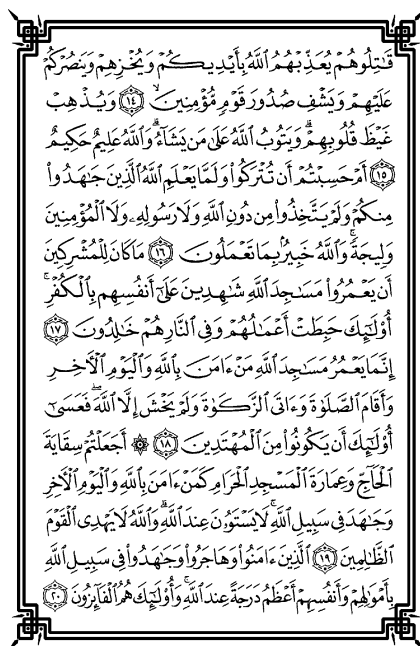 قَٰتِلُوهُمۡ يُعَذِّبۡهُمُ ٱللَّهُ بِأَيۡدِيكُمۡ وَيُخۡزِهِمۡ وَيَنصُرۡكُمۡ
عَلَيۡهِمۡ وَيَشۡفِ صُدُورَ قَوۡمٖ مُّؤۡمِنِينَ ١٤ وَيُذۡهِبۡ
غَيۡظَ قُلُوبِهِمۡۗ وَيَتُوبُ ٱللَّهُ عَلَىٰ مَن يَشَآءُۗ وَٱللَّهُ عَلِيمٌ حَكِيمٌ
١٥ أَمۡ حَسِبۡتُمۡ أَن تُتۡرَكُواْ وَلَمَّا يَعۡلَمِ ٱللَّهُ ٱلَّذِينَ جَٰهَدُواْ
مِنكُمۡ وَلَمۡ يَتَّخِذُواْ مِن دُونِ ٱللَّهِ وَلَا رَسُولِهِۦ وَلَا ٱلۡمُؤۡمِنِينَ
وَلِيجَةٗۚ وَٱللَّهُ خَبِيرُۢ بِمَا تَعۡمَلُونَ ١٦ مَا كَانَ لِلۡمُشۡرِكِينَ
أَن يَعۡمُرُواْ مَسَٰجِدَ ٱللَّهِ شَٰهِدِينَ عَلَىٰٓ أَنفُسِهِم بِٱلۡكُفۡرِۚ
أُوْلَٰٓئِكَ حَبِطَتۡ أَعۡمَٰلُهُمۡ وَفِي ٱلنَّارِ هُمۡ خَٰلِدُونَ ١٧
إِنَّمَا يَعۡمُرُ مَسَٰجِدَ ٱللَّهِ مَنۡ ءَامَنَ بِٱللَّهِ وَٱلۡيَوۡمِ ٱلۡأٓخِرِ
وَأَقَامَ ٱلصَّلَوٰةَ وَءَاتَى ٱلزَّكَوٰةَ وَلَمۡ يَخۡشَ إِلَّا ٱللَّهَۖ فَعَسَىٰٓ
أُوْلَٰٓئِكَ أَن يَكُونُواْ مِنَ ٱلۡمُهۡتَدِينَ ١٨ ۞ أَجَعَلۡتُمۡ سِقَايَةَ
ٱلۡحَآجِّ وَعِمَارَةَ ٱلۡمَسۡجِدِ ٱلۡحَرَامِ كَمَنۡ ءَامَنَ بِٱللَّهِ وَٱلۡيَوۡمِ ٱلۡأٓخِرِ
وَجَٰهَدَ فِي سَبِيلِ ٱللَّهِۚ لَا يَسۡتَوُۥنَ عِندَ ٱللَّهِۗ وَٱللَّهُ لَا يَهۡدِي ٱلۡقَوۡمَ
ٱلظَّٰلِمِينَ ١٩ ٱلَّذِينَ ءَامَنُواْ وَهَاجَرُواْ وَجَٰهَدُواْ فِي سَبِيلِ ٱللَّهِ
بِأَمۡوَٰلِهِمۡ وَأَنفُسِهِمۡ أَعۡظَمُ دَرَجَةً عِندَ ٱللَّهِۚ وَأُوْلَٰٓئِكَ هُمُ ٱلۡفَآئِزُونَ ٢٠